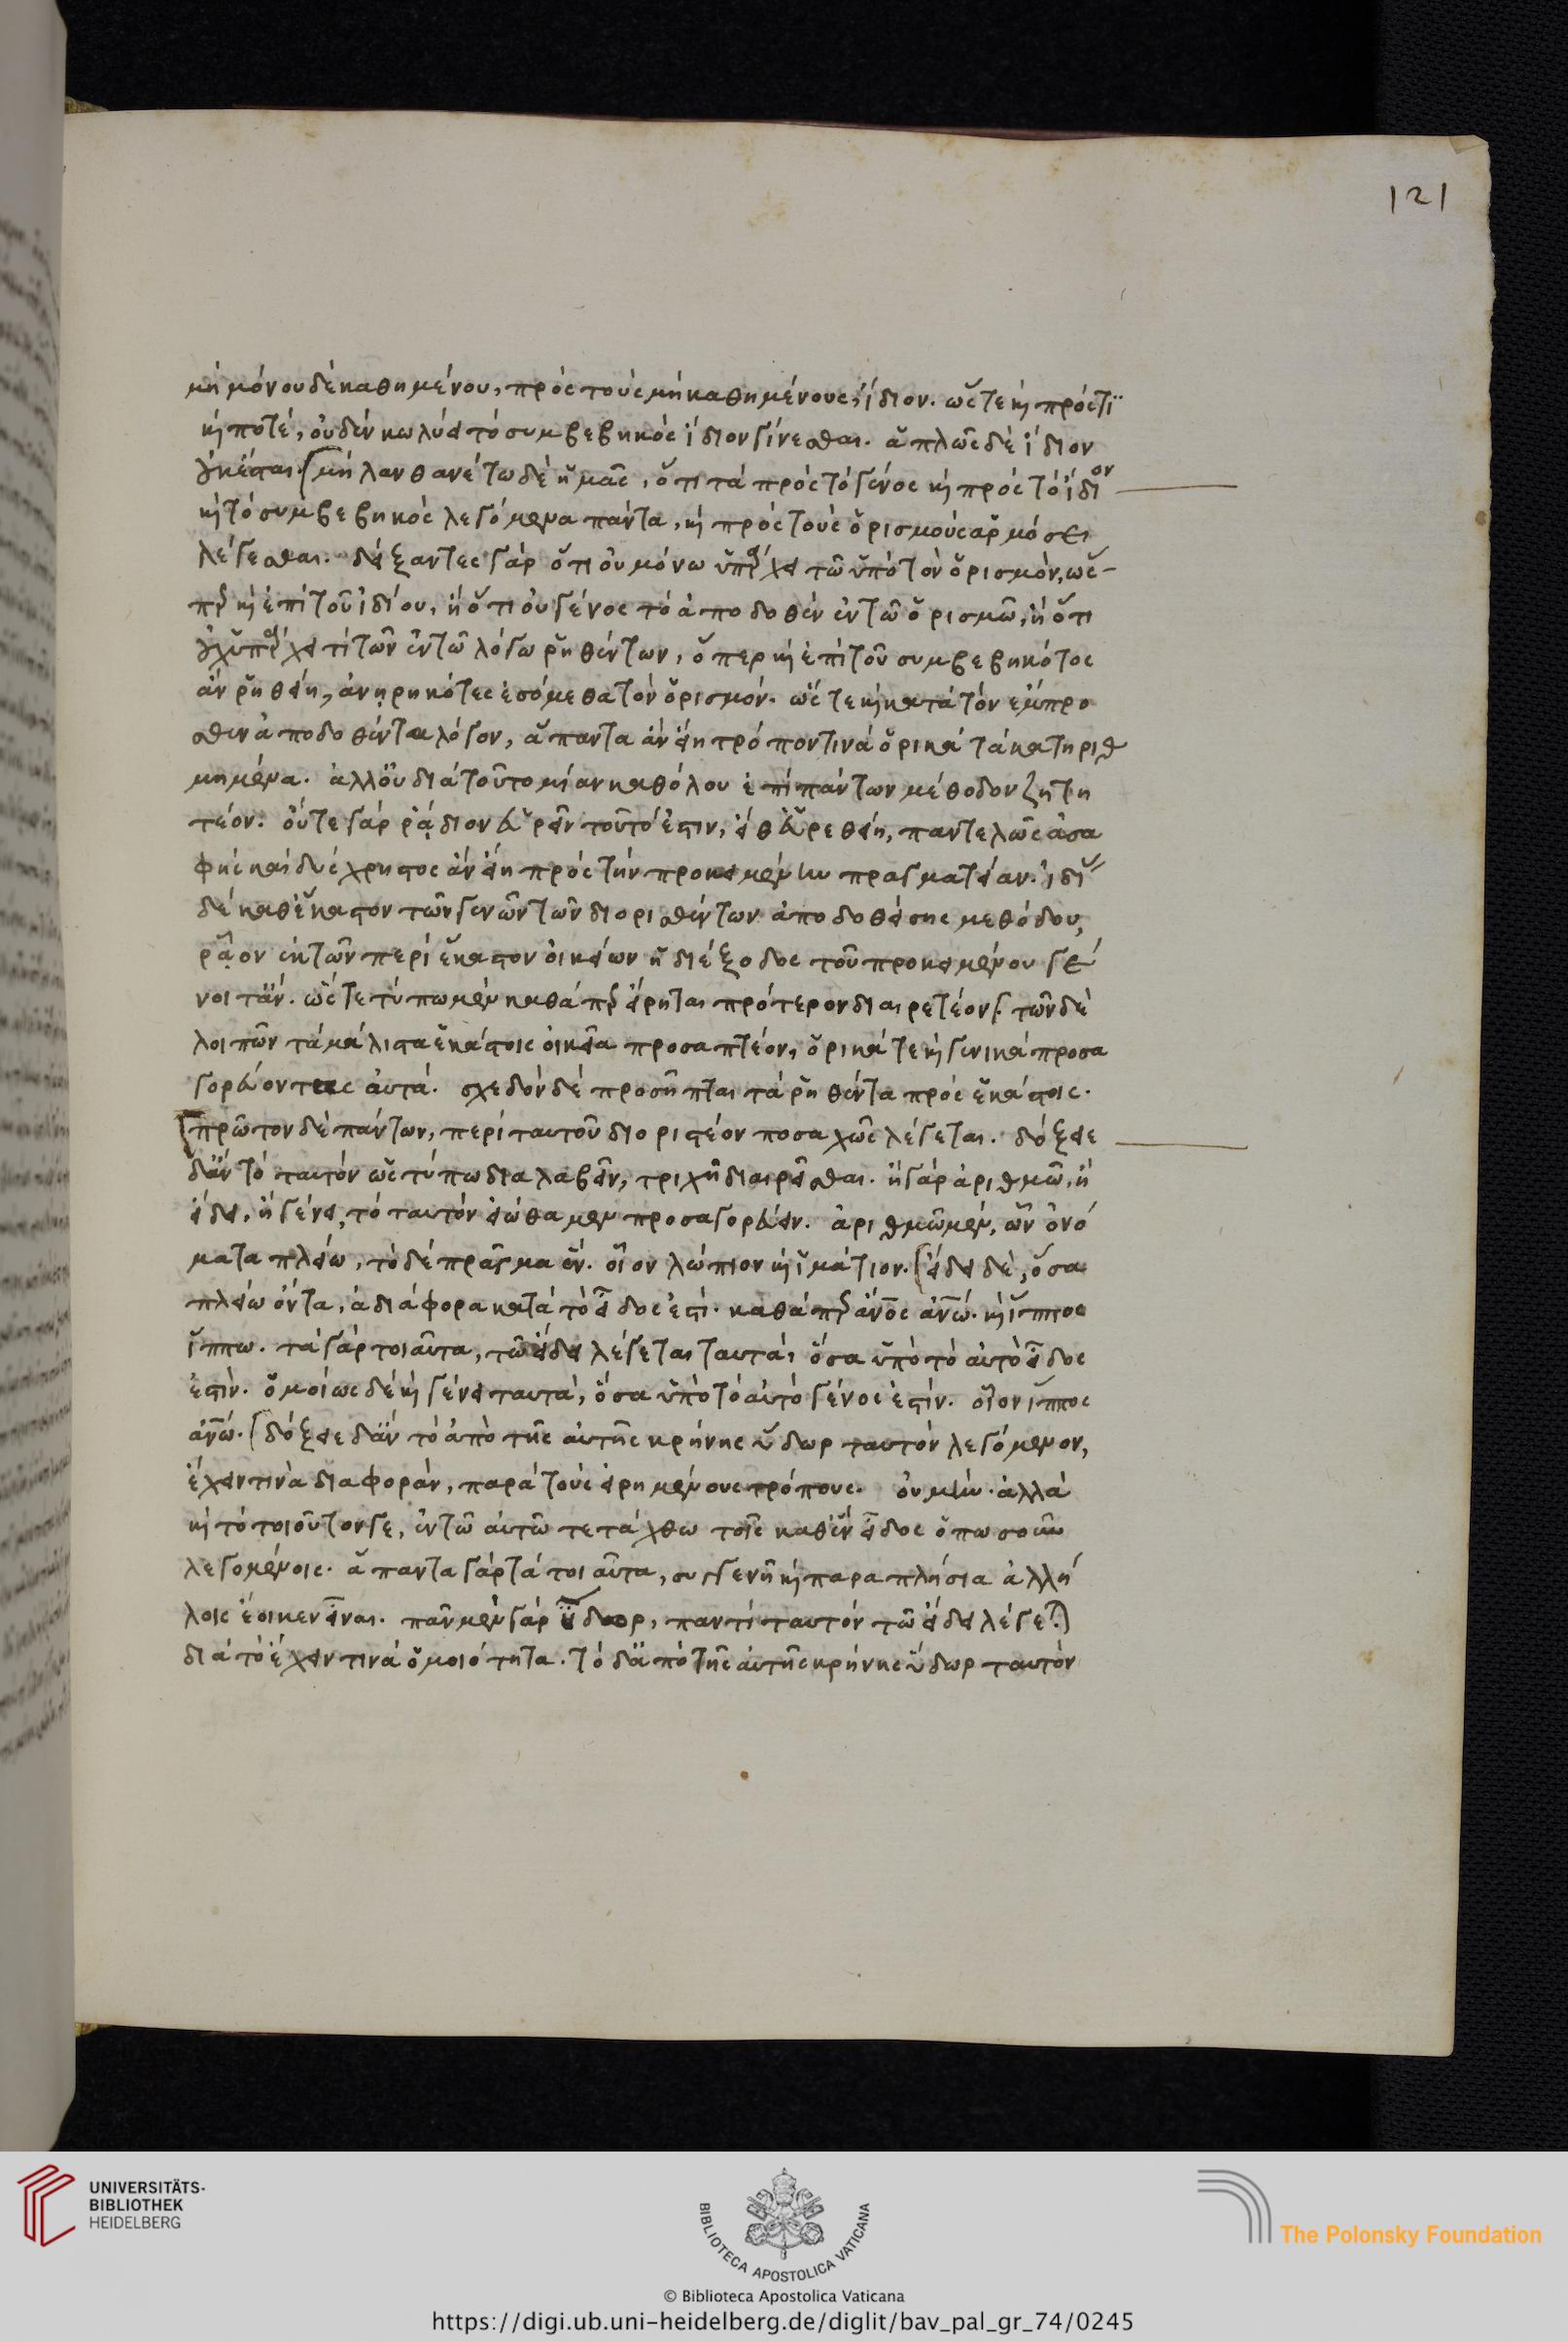 121
μὴ μόνου δὲ καθημένου, πρὸς τοὺς μὴ καθημένους, ἴδιον. ὥςτε κ πρός τι
κ ποτέ, οὐδὲν κωλύει τὸ συμβεβηκὸς ἴδιον γίνεσθαι. ἁπλῶς δὲ ἴδιον
οὐκ ἔσται. μὴ λανθανέτω δὲ ἡμᾶς, ὅτι τὰ πρὸς τὸ γένος κ πρὸς τὸ ἴδιον
κ τὸ συμβεβηκὸς λεγόμενα πάντα, κ πρὸς τοὺς ὁρισμοὺς ἁρμόσει
λέγεσθαι. δείξαντες γὰρ ὅτι οὐ μόνω ὑπάρχει τῶ ὑπὸ τὸν ὁρισμὸν, ὥς-
περ κ ἐπὶ τοῦ ἰδίου, ἢ ὅτι οὐ γένος τὸ ἀποδοθὲν ἐν τῶ ὁρισμῶ, ἢ ὅτι
οὐχ ὑπάρχει τὶ τῶν ἐν τῶ λόγω ῥηθέντων, ὅπερ κ ἐπὶ τοῦ συμβεβηκότος
ἂν ῥηθείη, ἀνῃρηκότες ἐσόμεθα τὸν ὁρισμόν. ὥςτε κ κατὰ τὸν ἔμπρο
σθεν ἀποδοθέντα λόγον, ἅπαντα ἂν εἴη τρόπον τινὰ ὁρικὰ τὰ κατηριθ
μημένα. ἀλλ' οὐ διὰ τοῦτο μίαν καθόλου ἐπὶ πάντων μέθοδον ζητη
τέον. οὔτε γὰρ ῥᾴδιον εὑρεῖν τοῦτό ἐστιν, εἴ θ' εὑρεθείη, παντελῶς ἀσα
φὴς καὶ δύςχρηστος ἂν εἴη πρὸς τὴν προκειμένην πραγματείαν. ἰδί
δὲ καθ' ἕκαστον τῶν γενῶν τῶν διορισθέντων ἀποδοθείσης μεθόδου,
ῥᾷον ἐκ τῶν περὶ ἕκαστον οἰκείων ἡ διέξοδος τοῦ προκειμένου γέ
νοιτ' ἄν. ὥςτε τύπω μὲν καθάπερ εἴρηται πρότερον διαιρετέον. τῶν δὲ
λοιπῶν τὰ μάλιστα ἑκάστοις οἰκεῖα προσαπτέον, ὁρικά τε κ γενικὰ προσα
γορεύοντας αὐτά. σχεδὸν δὲ προσῆπται τὰ ῥηθέντα πρὸς ἑκάστοις.
πρῶτον δὲ πάντων, περὶ ταυτοῦ διοριστέον ποσαχῶς λέγεται. δόξειε
δ' ἂν τὸ ταυτὸν ὡς τύπω διαλαβεῖν, τριχῆ διαιρεῖσθαι. ἢ γὰρ ἀριθμῶ, ἢ
εἴδει, ἢ γένει, τὸ ταυτὸν εἰώθαμεν προσαγορεύειν. ἀριθμῶ μὲν, ὧν ὀνό
ματα πλείω, τὸ δὲ πρᾶγμα ἕν. οἷον λώπιον κ ἱμάτιον. εἴδει δὲ, ὅσα
πλείω ὄντα, ἀδιάφορα κατὰ τὸ εἶδος ἐστί. καθάπερ ἄνος ἀνω. κ ἵππος
ἵππω. τὰ γὰρ τοιαῦτα, τῶ εἴδει λέγεται ταυτά, ὅσα ὑπὸ τὸ αὐτὸ εἶδος
ἐστὶν. ὁμοίως δὲ κ γένει ταυτά, ὅσα ὑπὸ τὸ αὐτὸ γένος ἐστίν. οἷον ἵππος
ἀνω. δόξειε δ' ἂν τὸ ἀπὸ τῆς αὐτῆς κρήνης ὕδωρ ταυτὸν λεγόμενον,
ἔχειν τινὰ διαφορὰν, παρὰ τοὺς εἰρημένους τρόπους. οὐ μὴν ἀλλὰ
κ τὸ τοιοῦτον γε, ἐν τῶ αὐτῶ τετάχθω τοῖς καθ' ἓν εἶδος ὁπωσοῦν
λεγομένοις. ἅπαντα γὰρ τὰ τοιαῦτα, συγγενῆ κ παραπλήσια ἀλλή
λοις ἔοικεν εἶναι. πᾶν μὲν γὰρ ὕδωρ, παντὶ ταυτὸν τῶ εἴδει λέγεται
διὰ τὸ ἔχειν τινὰ ὁμοιότητα. τὸ δ' ἀπὸ τῆς αὐτῆς κρήνης ὕδωρ ταυτὸν
UNIVERSITÄTS-
BIBLIOTHEK
HEIDELBERG
BIBLIOTECA APOSTOLICA VATICANA
The Polonsky Foundation
© Biblioteca Apostolica Vaticana
https://digi.ub.uni-heidelberg.de/diglit/bav_pal_gr_74/0245